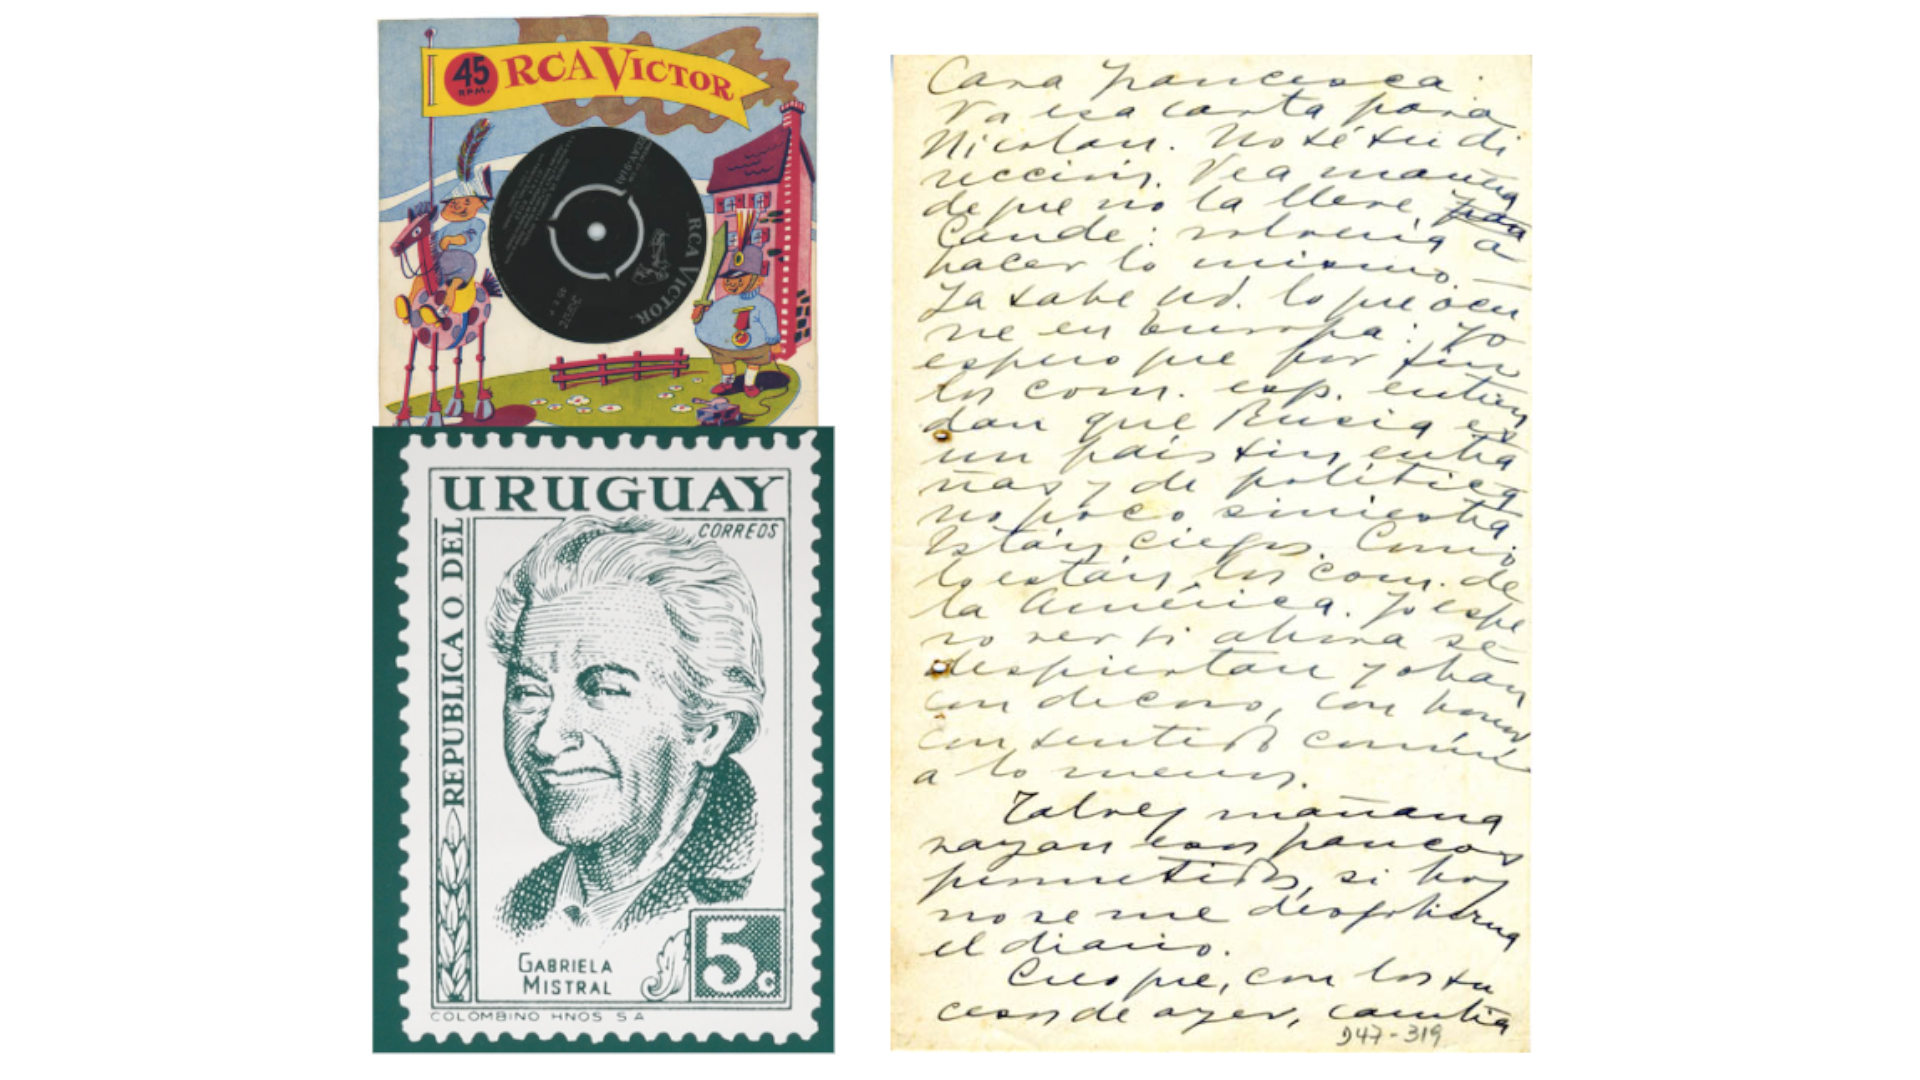 45
R.P.M.
RCA VICTOR
RCA VICTOR
45
URUGUAY
REPUBLICA O DEL
CORREOS
GABRIELA
MISTRAL
5c
COLOMBINO HNOS S A
Cara Francesca:
Va esa carta para
Nicolau. No sé su di
rección. Vea
de que no la lleve,
Caude: volvería a
hacer lo mismo.—
Ya sabe ud. lo que ocu
rre en Europa: Yo
espero que por fin
los com. esp. entien
dan que Rusia es
un país sin entra
ñas y de política
no poco siniestra
Están ciegos. Como
lo están los com. de
la América. Yo espe
ro ver si ahora se
despiertan y obran
con decoro, con honor
con sentido común
a lo menos.
Talvez mañana
vayan esos
permetidos, si hoy
no se me
el diario.
Creo que, con los su
cesos de ayer, cambia
D47-319